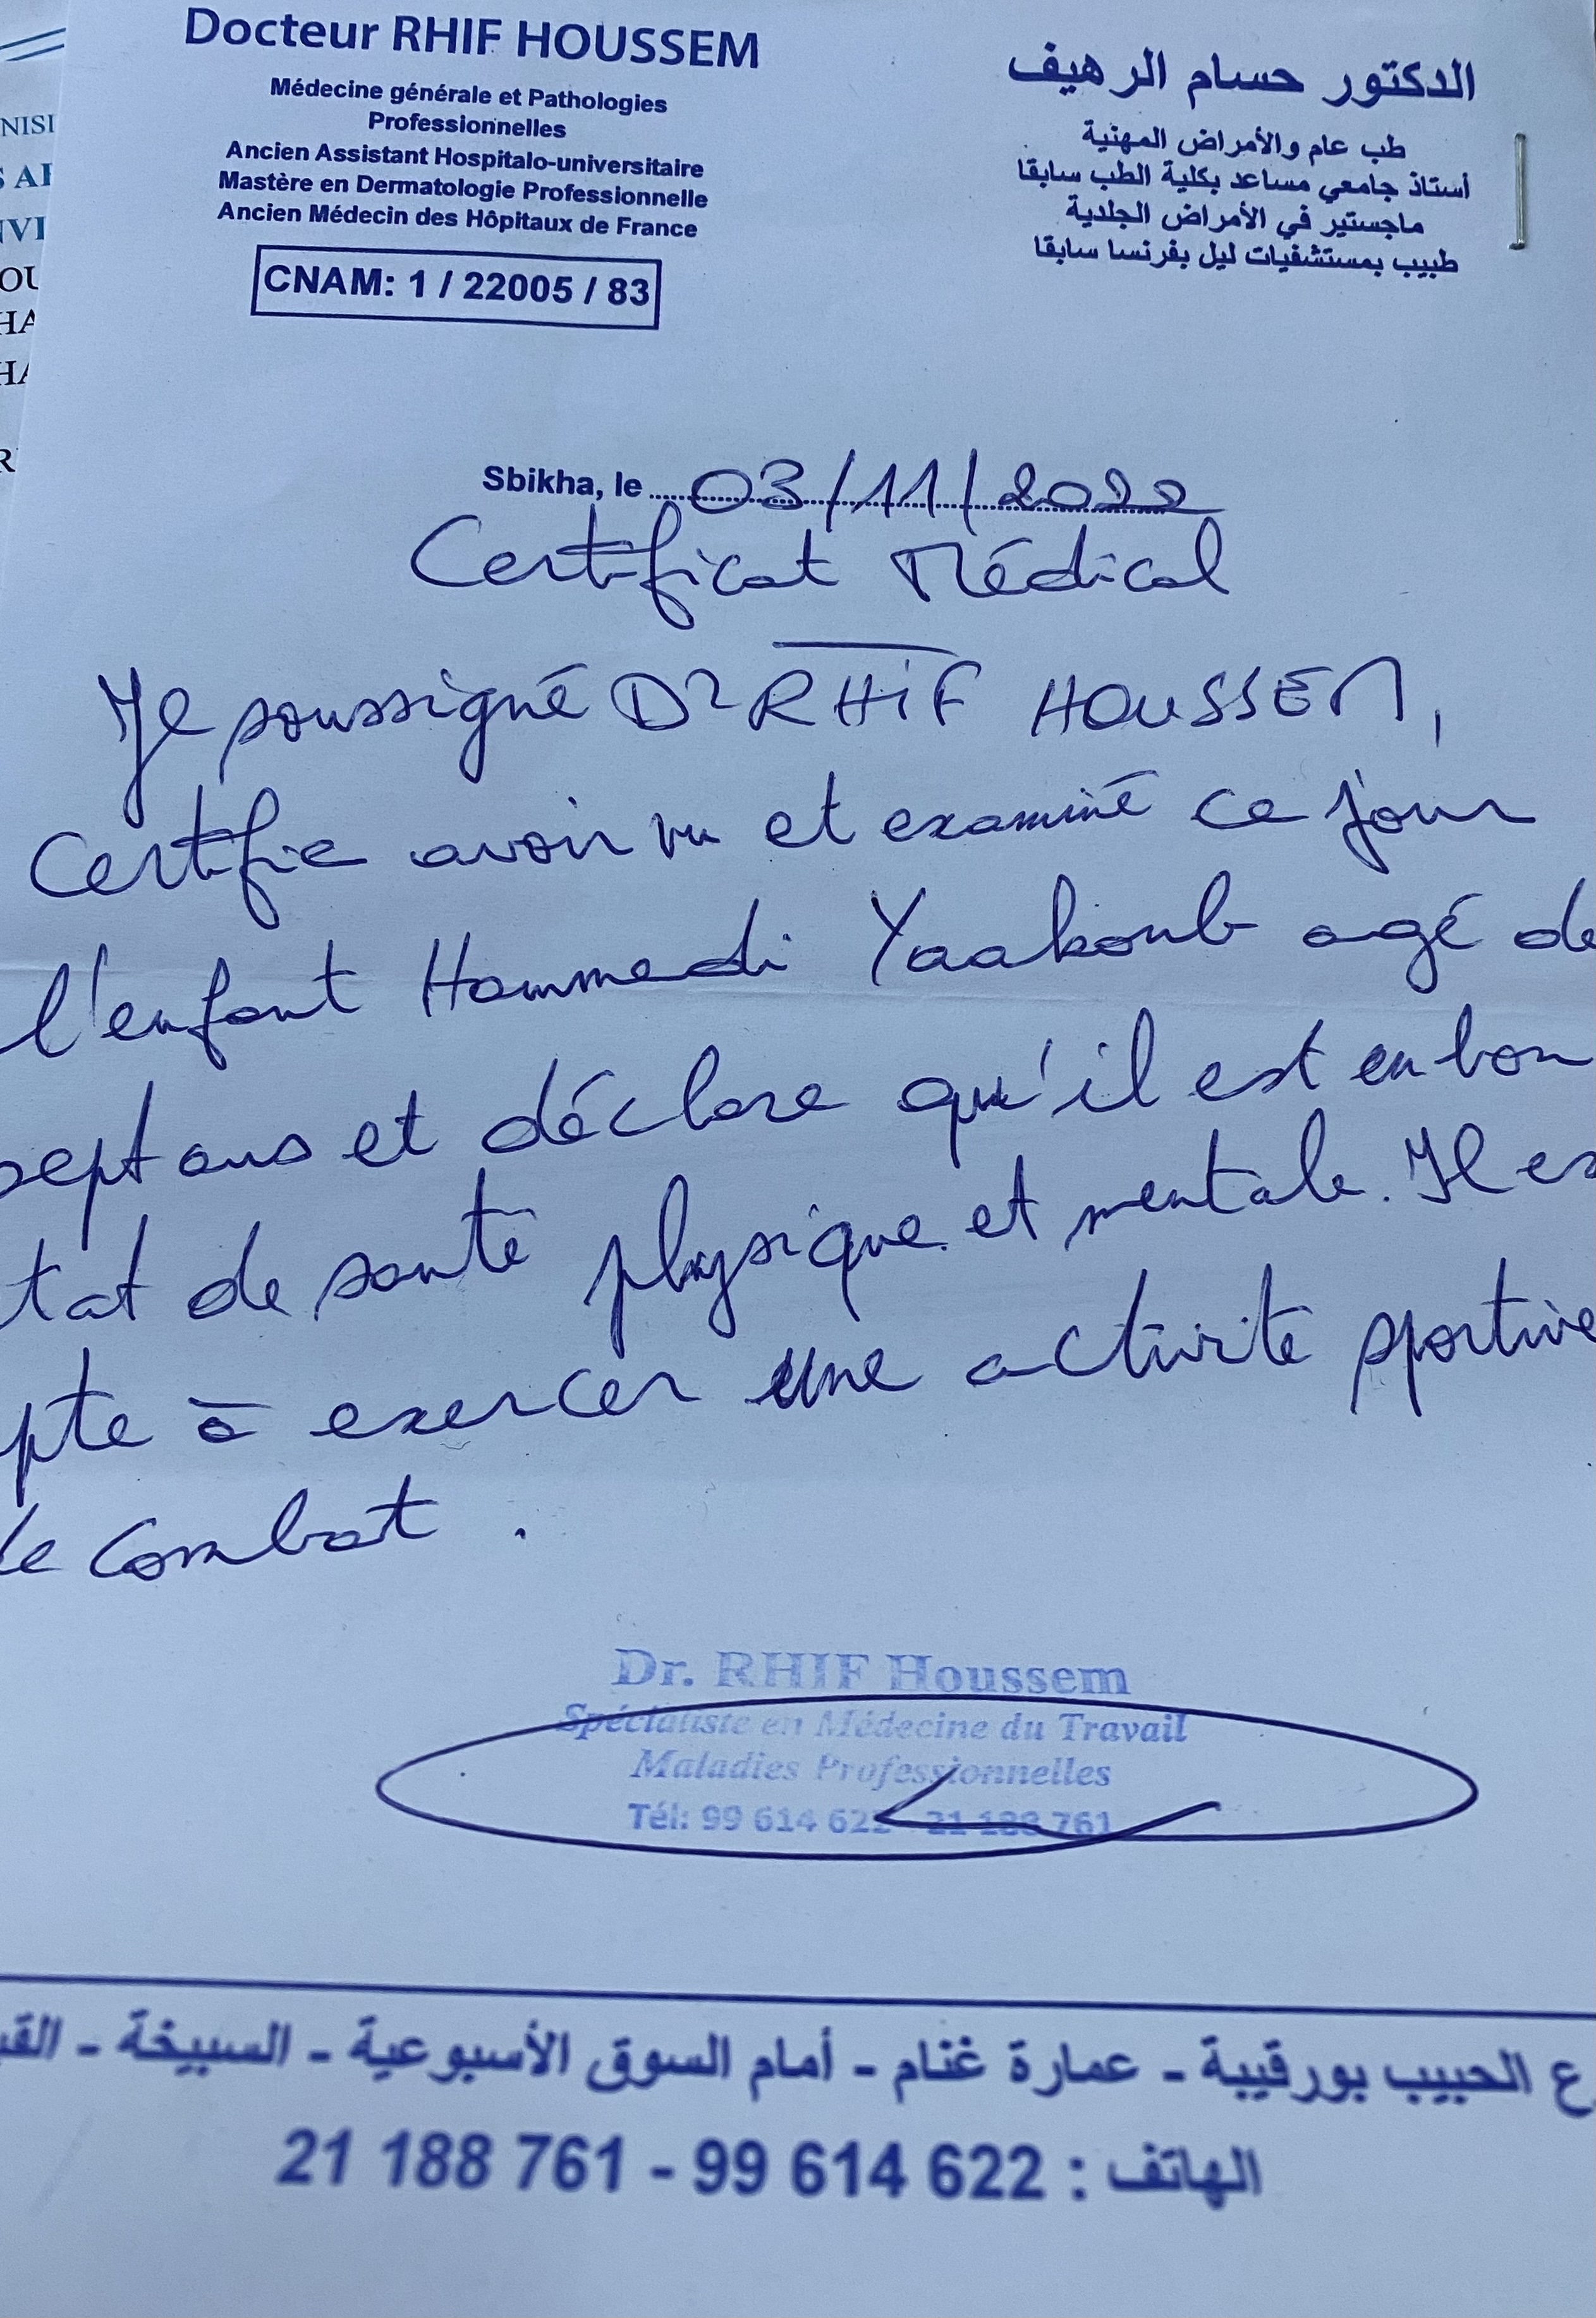 Docteur RHIF HOUSSEM
Médecine générale et Pathologies
Professionnelles
Ancien Assistant Hospitalo-universitaire
Mastère en Dermatologie Professionnelle
Ancien Médecin des Hôpitaux de France
CNAM: 1 / 22005 / 83
الدكتور حسام الرهيف
طب عام والأمراض المهنية
أستاذ جامعي مساعد بكلية الطب سابقا
ماجستير في الأمراض الجلدية
طبيب بمستشفيات ليل بفرنسا سابقا
NISI
S AI
NVI
OU
HA
HA
R
Sbikha, le 03/11/2022
Certificat Médical
Je soussigné Dr RHiF HOUSSEM,
Certifie avoir vu et examiné ce jour
l'enfant Hammedi Yaakoub agé de
sept ans et déclare qu'il est en bon
tat de santé physique et mentale. Il es
pte à exercer une activité sportive
de combat.
Dr. RHIF Houssem
Spécialiste en Médecine du Travail
Maladies Professionnelles
Tél: 99 614 622 - 21 188 761
ع الحبيب بورقيبة - عمارة غنام - أمام السوق الأسبوعية - السبيخة - الق
الهاتف : 622 614 99 - 761 188 21